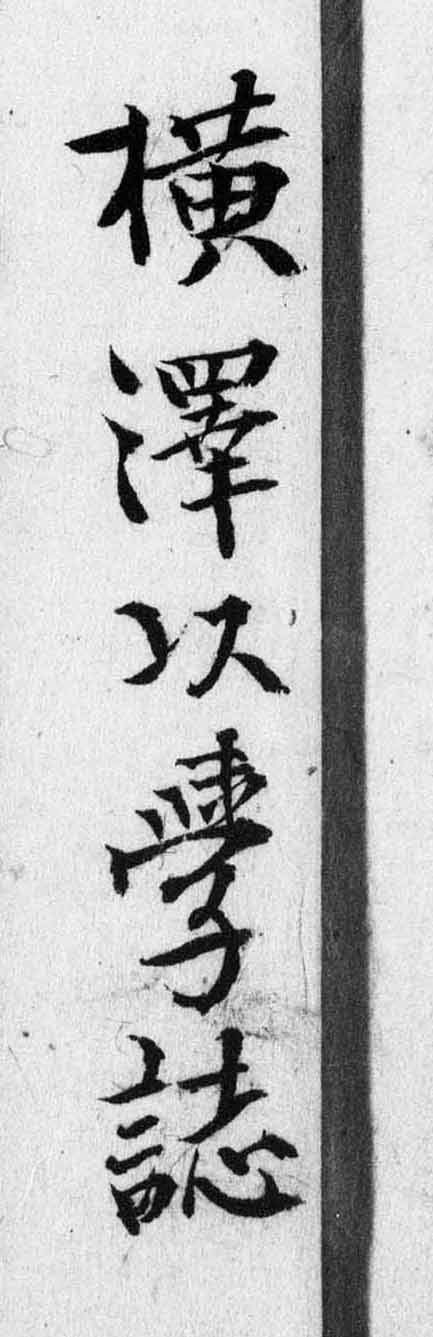 橫澤以學誌